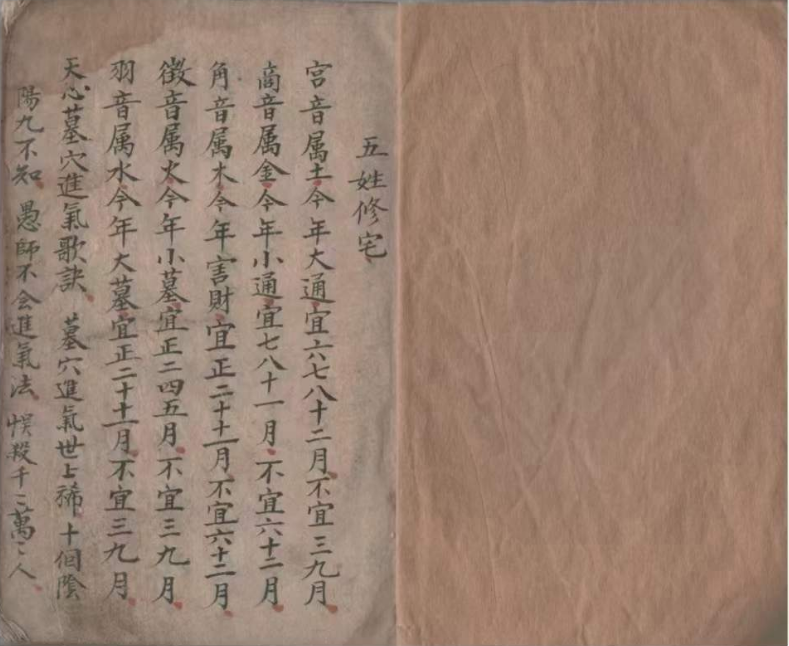 五姓修宅
宫音属土今年大通宜六七八十二月不宜三九月
商音属金今年小通宜七八十一月不宜六十二月
角音属木今年害財宜正二十十一月不宜六十二月
徵音属火今年小墓宜正二四五月不宜三九月
羽音属水今年大墓宜正二十十一月不宜三九月
天心墓穴進氣歌訣 墓穴進氣世上稀十個陰
陽九不知愚師不会進氣法悞殺千〻萬〻人